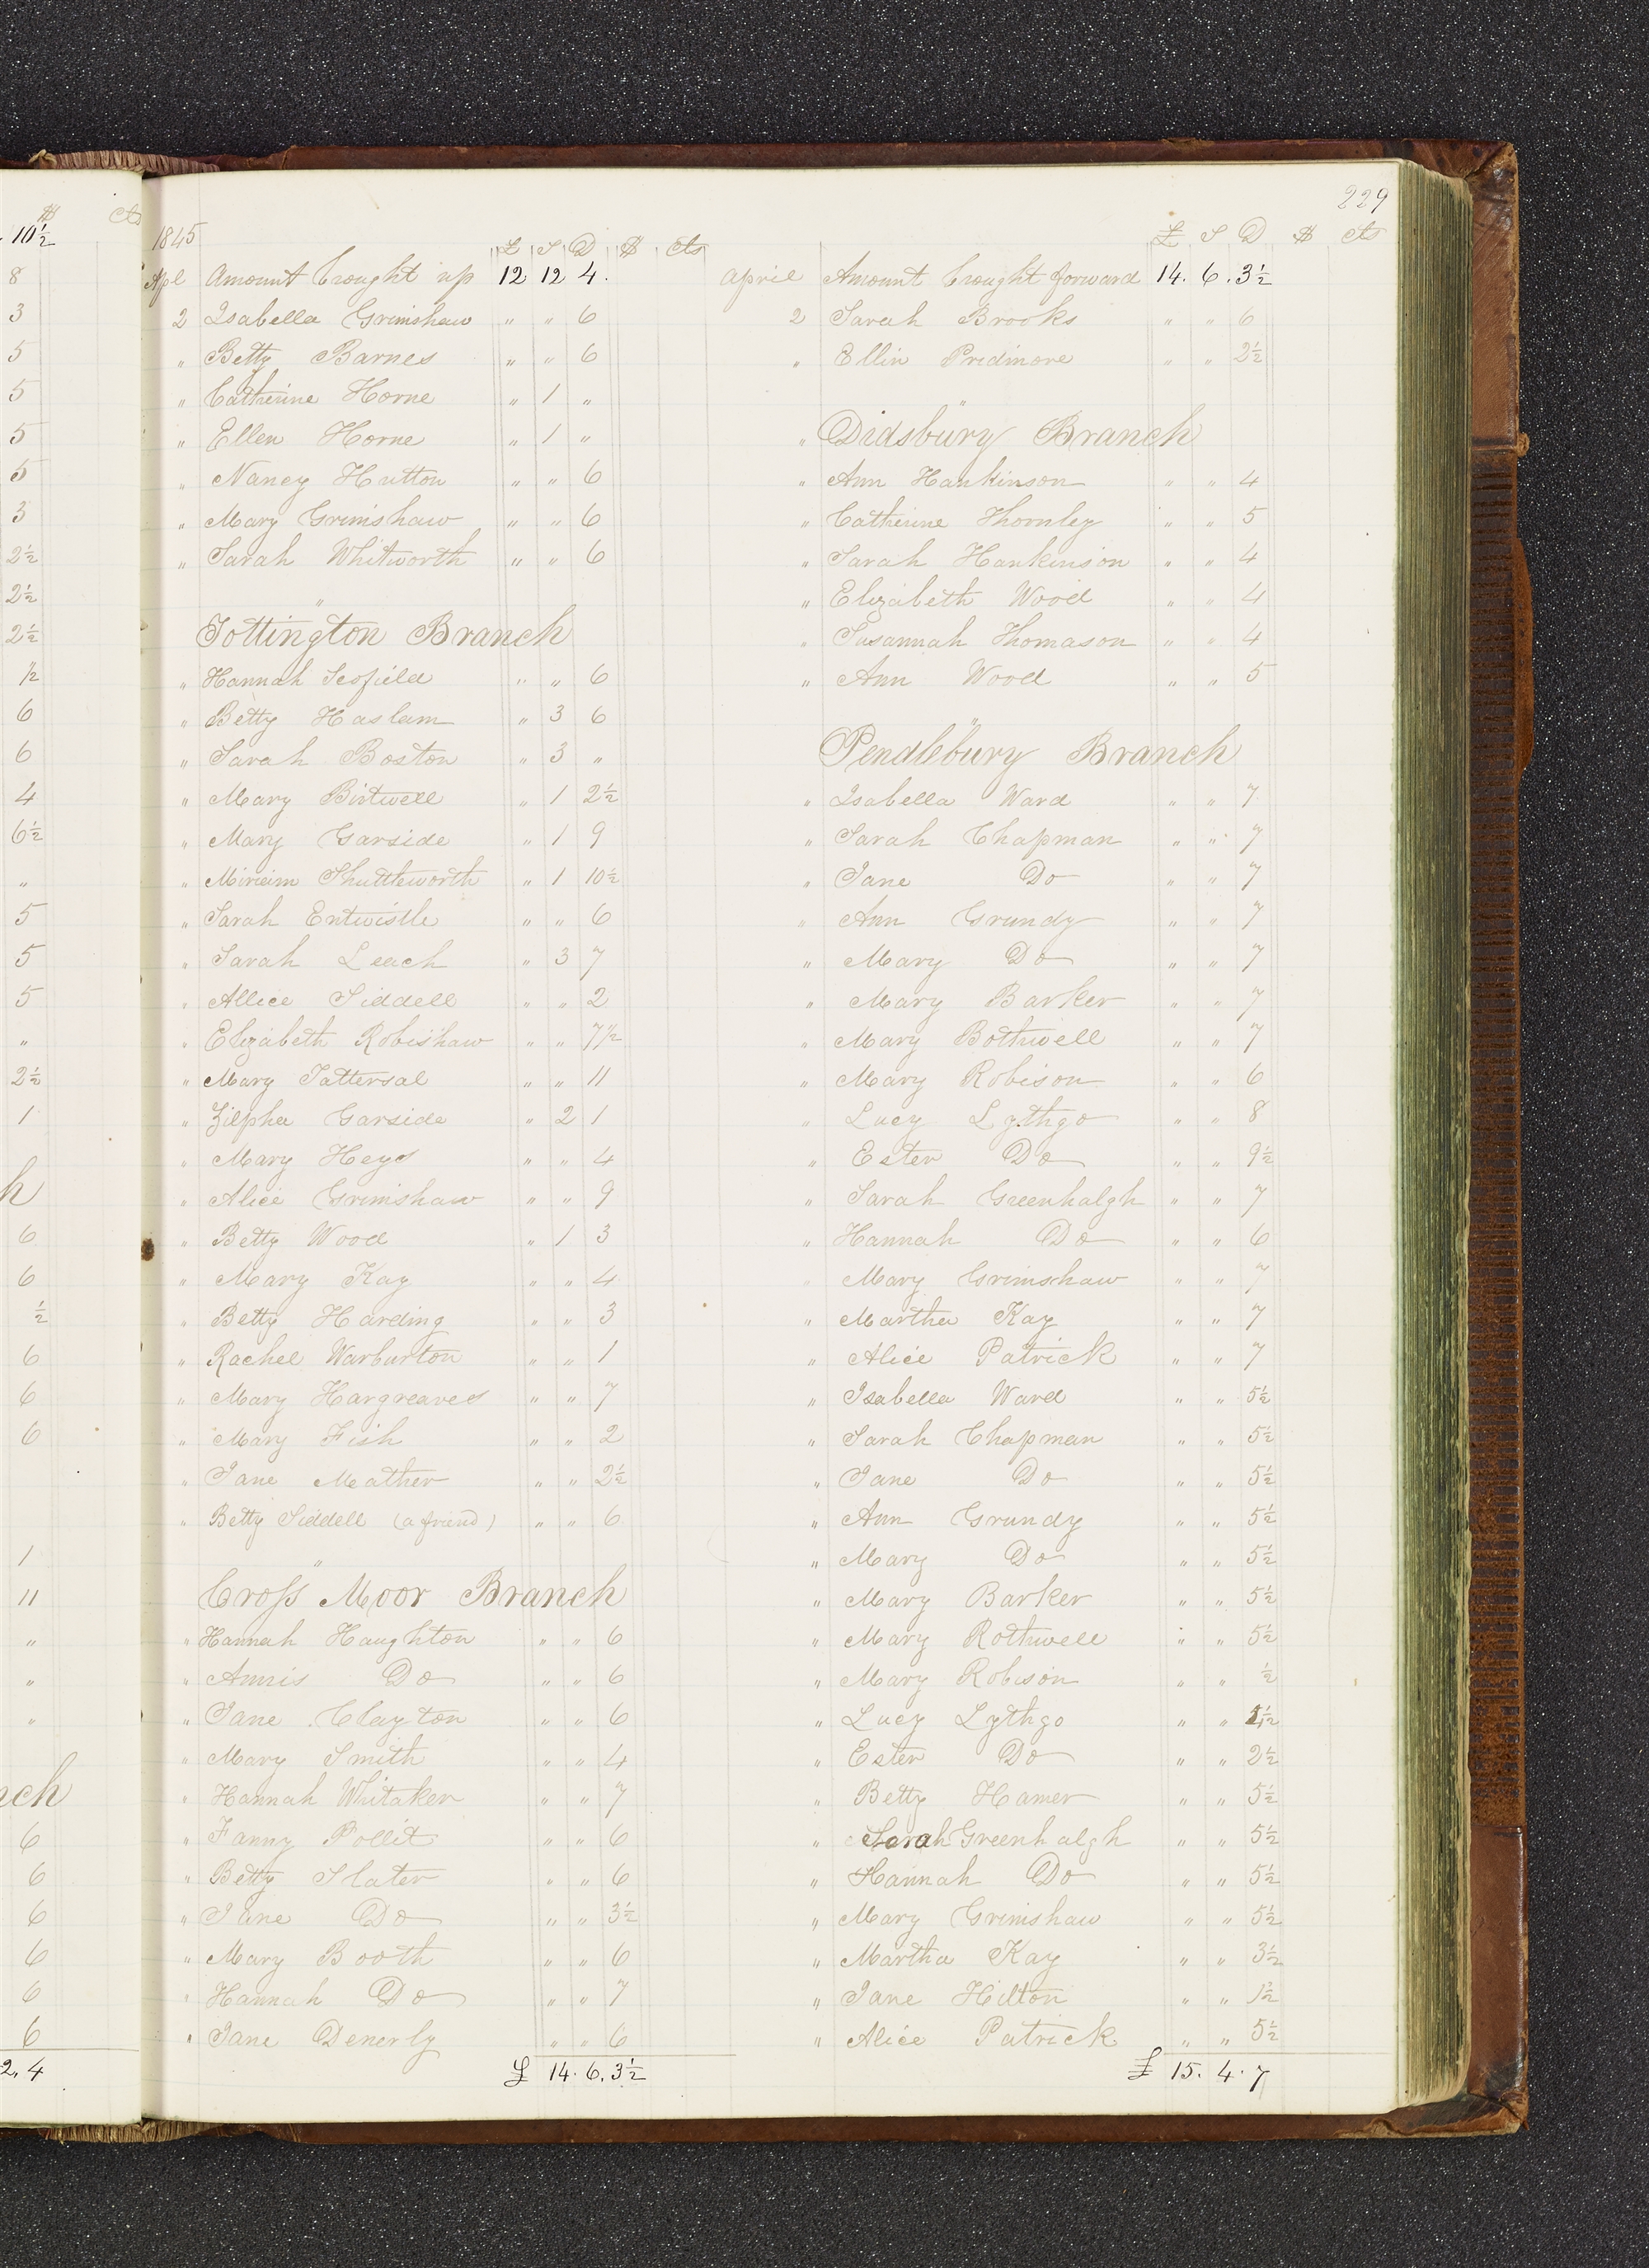 229
$ cts
10½
8
3
5
5
5
5
3
2½
2½
2½
½
6
6
4
6½
"
5
5
5
"
2½
1
h
6
6
½
6
6
6
1
11
"
"
"
nch
6
6
6
6
6
6
2, 4
1845
£ S D $ cts
Apl Amount brought up 12 12 4.
2 Isabella Grimshaw " " 6
" Betty Barnes " " 6
" Catherine Horne " 1 "
" Ellen Horne " 1 "
" Nancy Hutton " " 6
" Mary Grimshaw " " 6
" Sarah Whitworth " " 6
"
Tottington Branch
" Hannah Scofield " " 6
" Betty Haslam " 3 6
" Sarah Boston " 3 "
" Mary Birtwell " 1 2½
" Mary Garside " 1 9
" Mirieim Shuttleworth " 1 10½
" Sarah Entwistle " " 6
" Sarah Leach " 3 7
" Allice Siddell " " 2
" Elizabeth Robishaw " " 7½
" Mary Tattersal " " 11
" Zilpha Garside " 2 1
" Mary Heys " " 4
" Alice Grimshaw " " 9
" Betty Wood " 1 3
" Mary Kay " " 4
" Betty Harding " " 3
" Rachel Warburton " " 1
" Mary Hargreaves " " 7
" Mary Fish " " 2
" Jane Mather " " 2½
" Betty Siddell (a friend) " " 6
"
Cross Moor Branch
" Hannah Haughton " " 6
" Annis Do " " 6
" Jane Clayton " " 6
" Mary Smith " " 4
" Hannah Whitaker " " 7
" Fanny Pollit " " 6
" Betty Slater " " 6
" Jane Do " " 3½
" Mary Booth " " 6
" Hannah Do " " 7
" Jane Denerly " " 6
£ 14. 6. 3½
£ S D $ cts
April Amount brought forward 14. 6. 3½
2 Sarah Brooks " " 6
" Ellin Pridmore " " 2½
"
" Didsbury Branch
" Ann Hankinson " " 4
" Catherine Thornley " " 5
" Sarah Hankinson " " 4
" Elizabeth Wood " " 4
" Susannah Thomason " " 4
" Ann Wood " " 5
"
Pendlebury Branch
" Isabella Ward " " 7
" Sarah Chapman " " 7
" Jane Do " " 7
" Ann Grundy " " 7
" Mary Do " " 7
" Mary Barker " " 7
" Mary Bothwell " " 7
" Mary Robison " " 6
" Lucy Lythgo " " 8
" Ester Do " " 9½
" Sarah Greenhalgh " " 7
" Hannah Do " " 6
" Mary Grimshaw " " 7
" Martha Kay " " 7
" Alice Patrick " " 7
" Isabella Ward " " 5½
" Sarah Chapman " " 5½
" Jane Do " " 5½
" Ann Grundy " " 5½
" Mary Do " " 5½
" Mary Barker " " 5½
" Mary Rothwell " " 5½
" Mary Robison " " ½
" Lucy Lythgo " "
" Ester Do " " 2½
" Betty Hamer " " 5½
" Sarah Greenhalgh " " 5½
" Hannah Do " " 5½
" Mary Grimshaw " " 5½
" Martha Kay " " 3½
" Jane Hilton " " 1½
" Alice Patrick " " 5½
£ 15. 4. 7